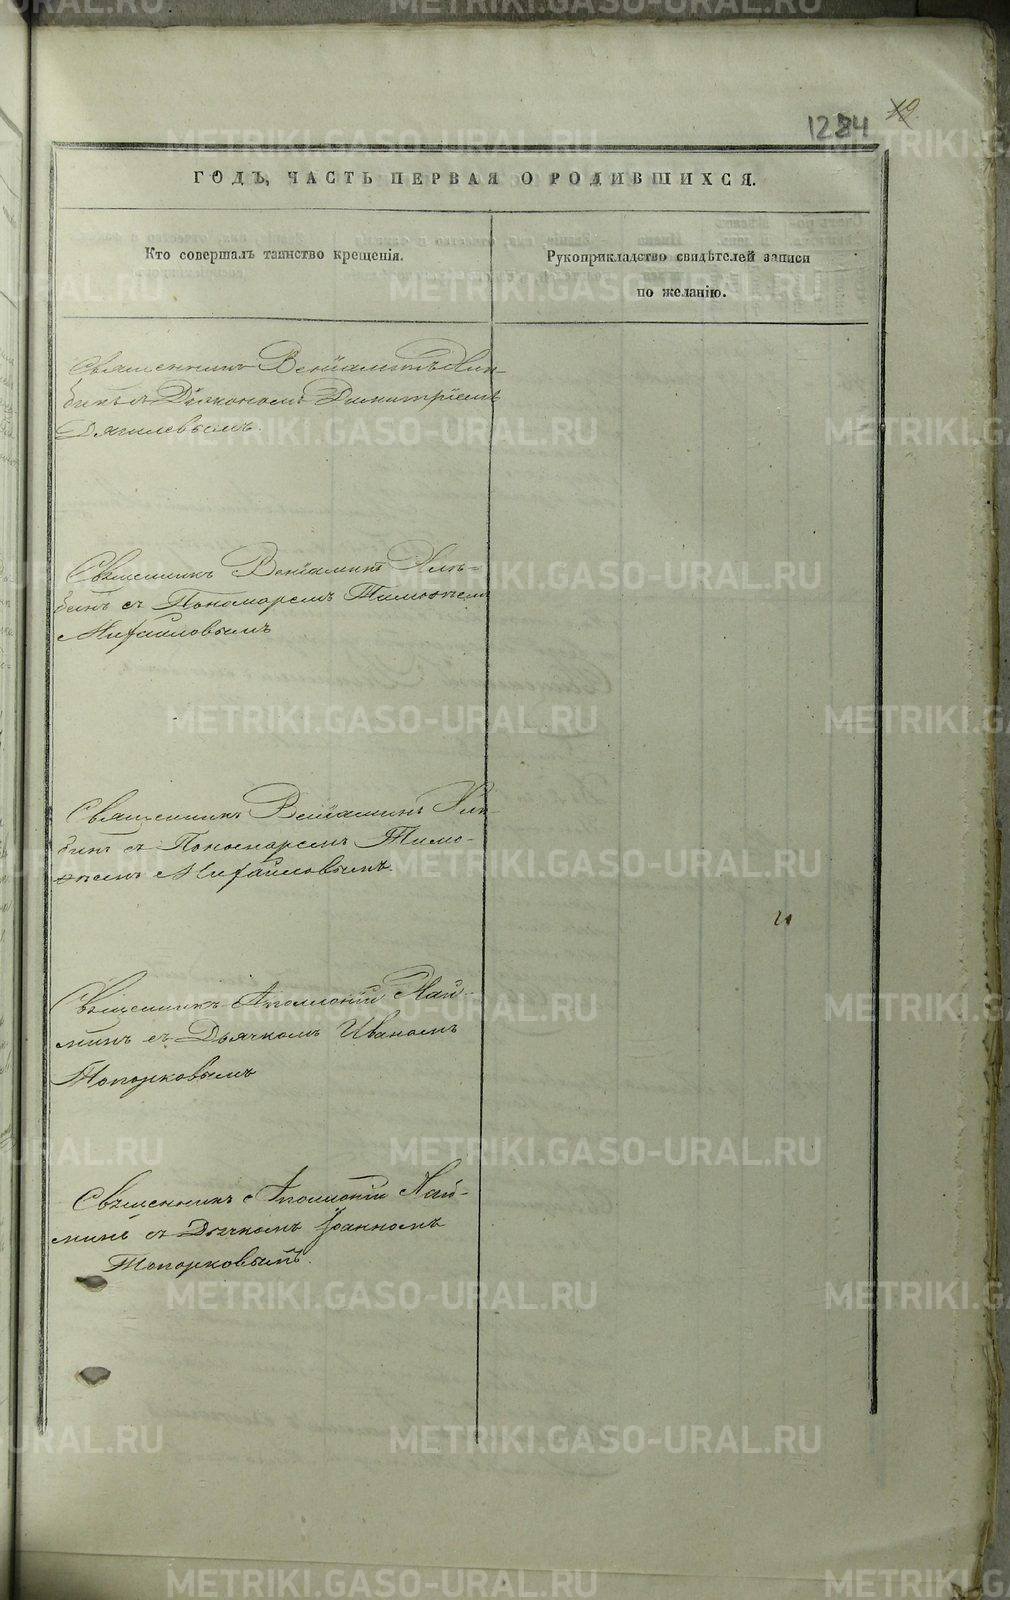 1224 19.
ГОДЪ, ЧАСТЬ ПЕРВАЯ О РОДИВШИХСЯ.
Кто совершалъ таинство крещенія.
Рукоприкладство свидѣтелей записи
по желанію.
Священникъ Веніаминъ
съ Діакономъ Димитріемъ
Дягилевымъ.
Священникъ Веніаминъ
съ Пономаремъ Тимоѳеем
Михайловымъ
Священникъ Веніаминъ
съ Пономаремъ Тимо-
ѳеемъ Михайловымъ.
Священникъ Аполлоній Най-
минъ съ Дьячкомъ Иваномъ
Топорковымъ
Священникъ Аполлоній Най-
минъ съ Дьячкомъ Іоанномъ
Топорковымъ.
METRIKI.GASO-URAL.RU